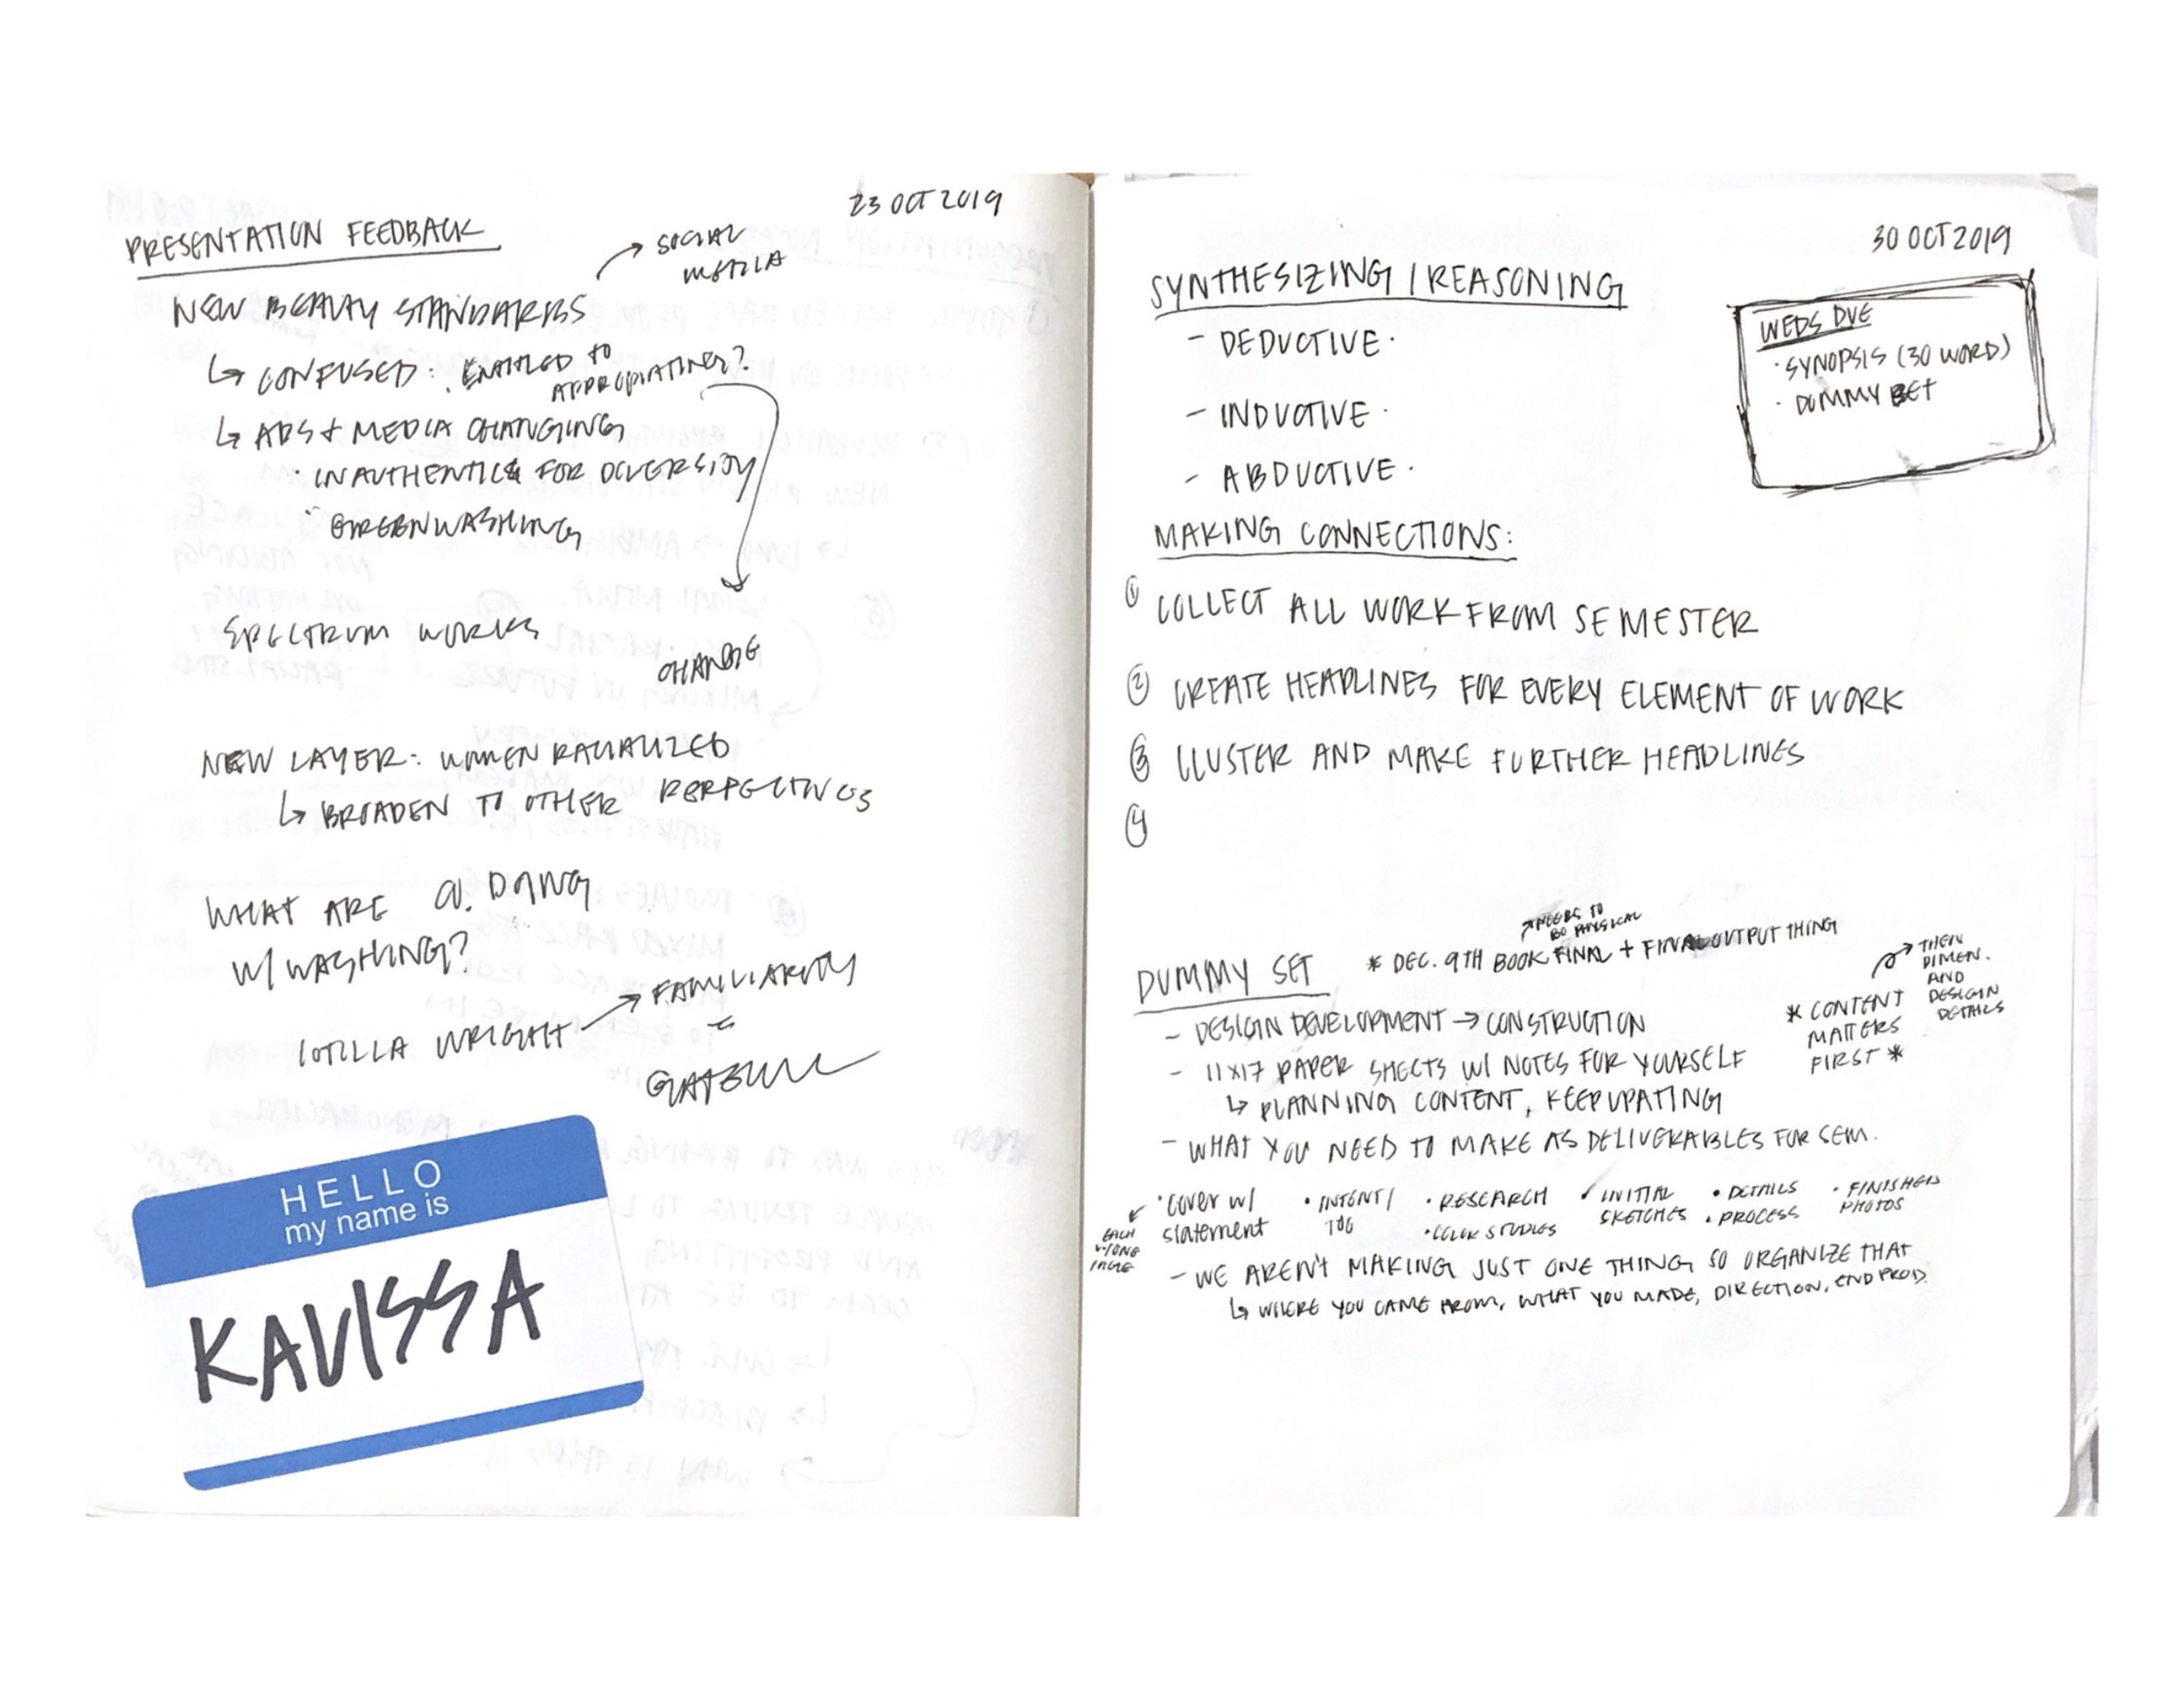 23 OCT 2019
PRESENTATION FEEDBACK
SOCIAL
MEDIA
NEW BEAUTY STANDARDS
↳ CONFUSED: ENTITLED TO
APPROPRIATING?
↳ ADS + MEDIA CHANGING
· INAUTHENTIC FOR DIVERSITY
· GREENWASHING
SPECTRUM WORKS
CHANGE
NEW LAYER: WOMEN RACIALIZED
↳ BROADEN TO OTHER PERSPECTIVES
WHAT ARE DOING
W/ WASHING?
WRIGHT → FAMILIARITY
HELLO
my name is
KAVISSA
30 OCT 2019
SYNTHESIZING / REASONING
- DEDUCTIVE.
- INDUCTIVE.
- ABDUCTIVE.
WEDS DUE
· SYNOPSIS (30 WORD)
· DUMMY SET
MAKING CONNECTIONS:
① COLLECT ALL WORK FROM SEMESTER
② CREATE HEADLINES FOR EVERY ELEMENT OF WORK
③ CLUSTER AND MAKE FURTHER HEADLINES
④
NEEDS TO
BE PHYSICAL
DUMMY SET * DEC. 9TH BOOK FINAL + FINAL OUTPUT THING
- DESIGN DEVELOPMENT → CONSTRUCTION
- 11x17 PAPER SHEETS W/ NOTES FOR YOURSELF
↳ PLANNING CONTENT, KEEP UPATING
* CONTENT
MATTERS
FIRST *
THEN
DIMEN.
AND
DESIGN
DETAILS
- WHAT YOU NEED TO MAKE AS DELIVERABLES FOR SEM.
· cover w/
statement
· INTENT/
· RESEARCH
· COLOR STUDIES
INITIAL
SKETCHES
· DETAILS
· PROCESS
· FINISHED
PHOTOS
EACH
- WE AREN'T MAKING JUST ONE THING SO ORGANIZE THAT
↳ WHERE YOU CAME FROM, WHAT YOU MADE, DIRECTION, END PROD.